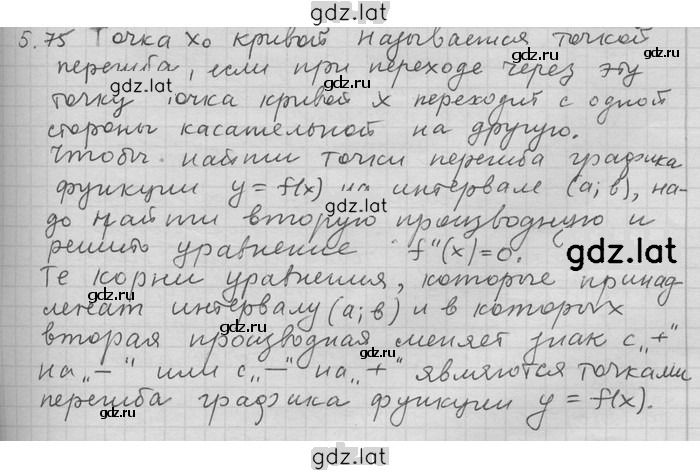 gdz.lat
5.75 Точка x₀ кривой называется точкой
перегиба, если при переходе через эту
точку точка кривой x переходит с одной
стороны касательной на другую.
Чтобы найти точки перегиба графика
функции y = f(x) на интервале (a; в), на-
gdz.lat
до найти вторую производную и
решить уравнение f"(x)=0.
gdz.lat
Те корни уравнения, которые принад
gdz.lat
лежат интервалу (a; в) и в которых
вторая производная меняет знак с „+"
на „—" или с „—" на „+" являются точками
gdz.lat
перегиба графика функции y = f(x).
gdz.lat